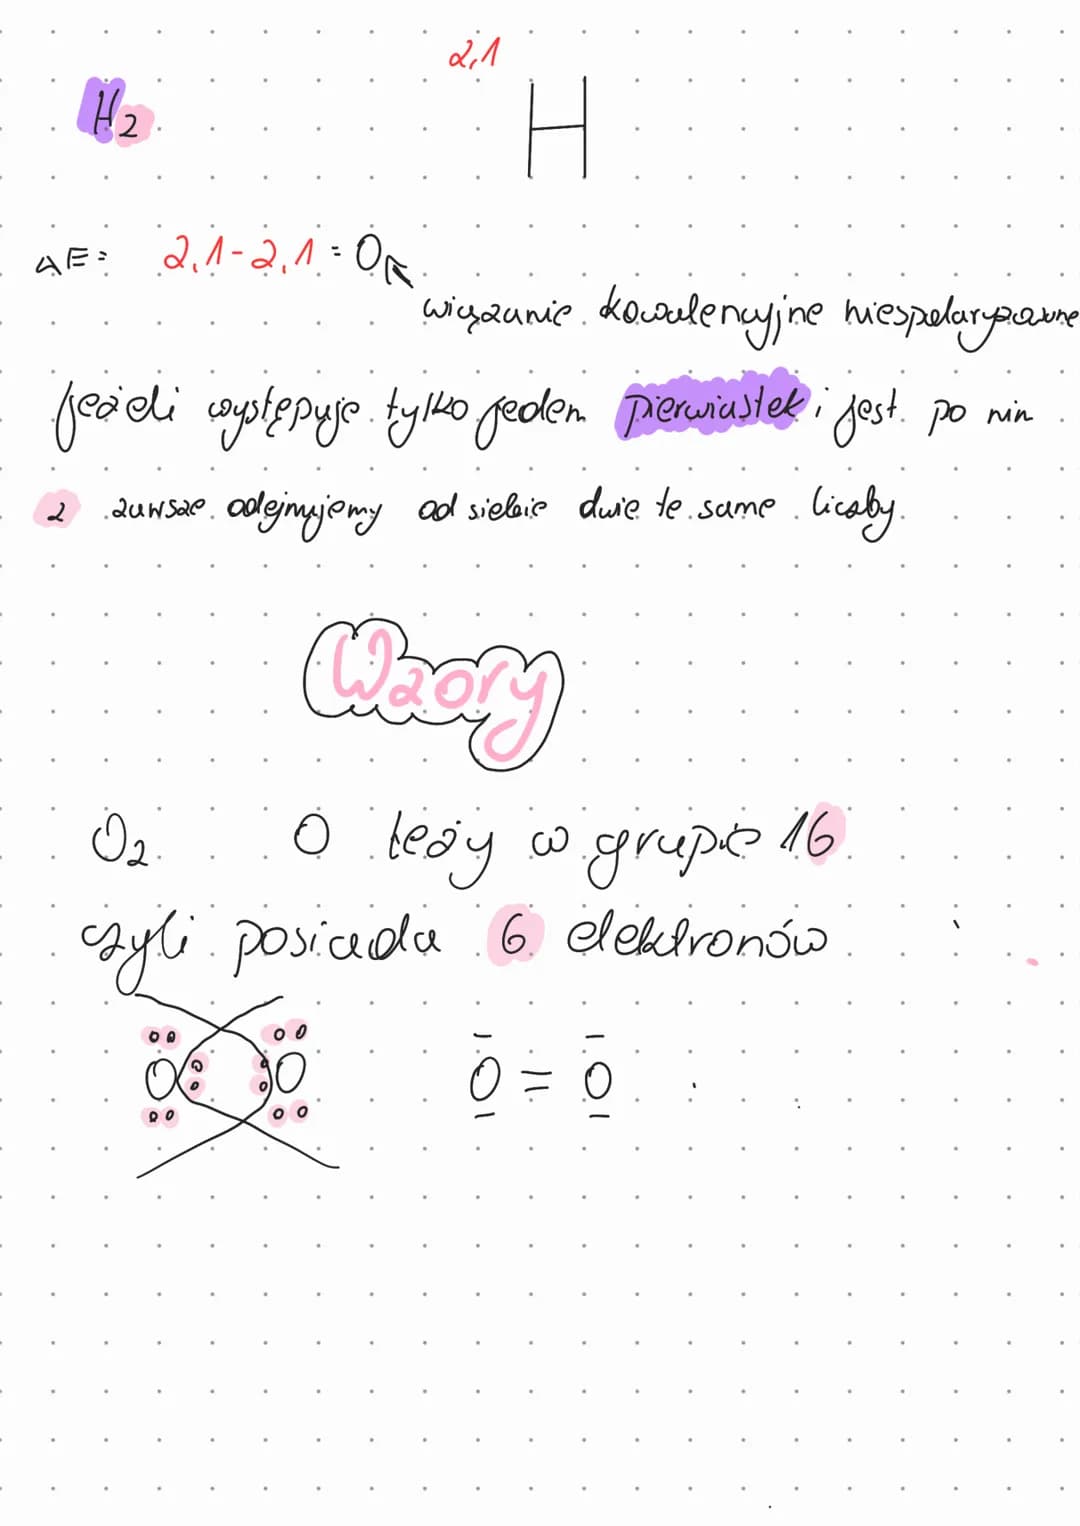 2,1
H2 H
ΔE= 2,1-2,1=0
wiązanie kowalencyjne niespolaryzowane
jeżeli występuje tylko jeden pierwiastek i jest po nim
2 zawsze odejmujemy od siebie dwie te same liczby.
Wzory
O2 O leży w grupie 16
czyli posiada 6 elektronów
O O O = O